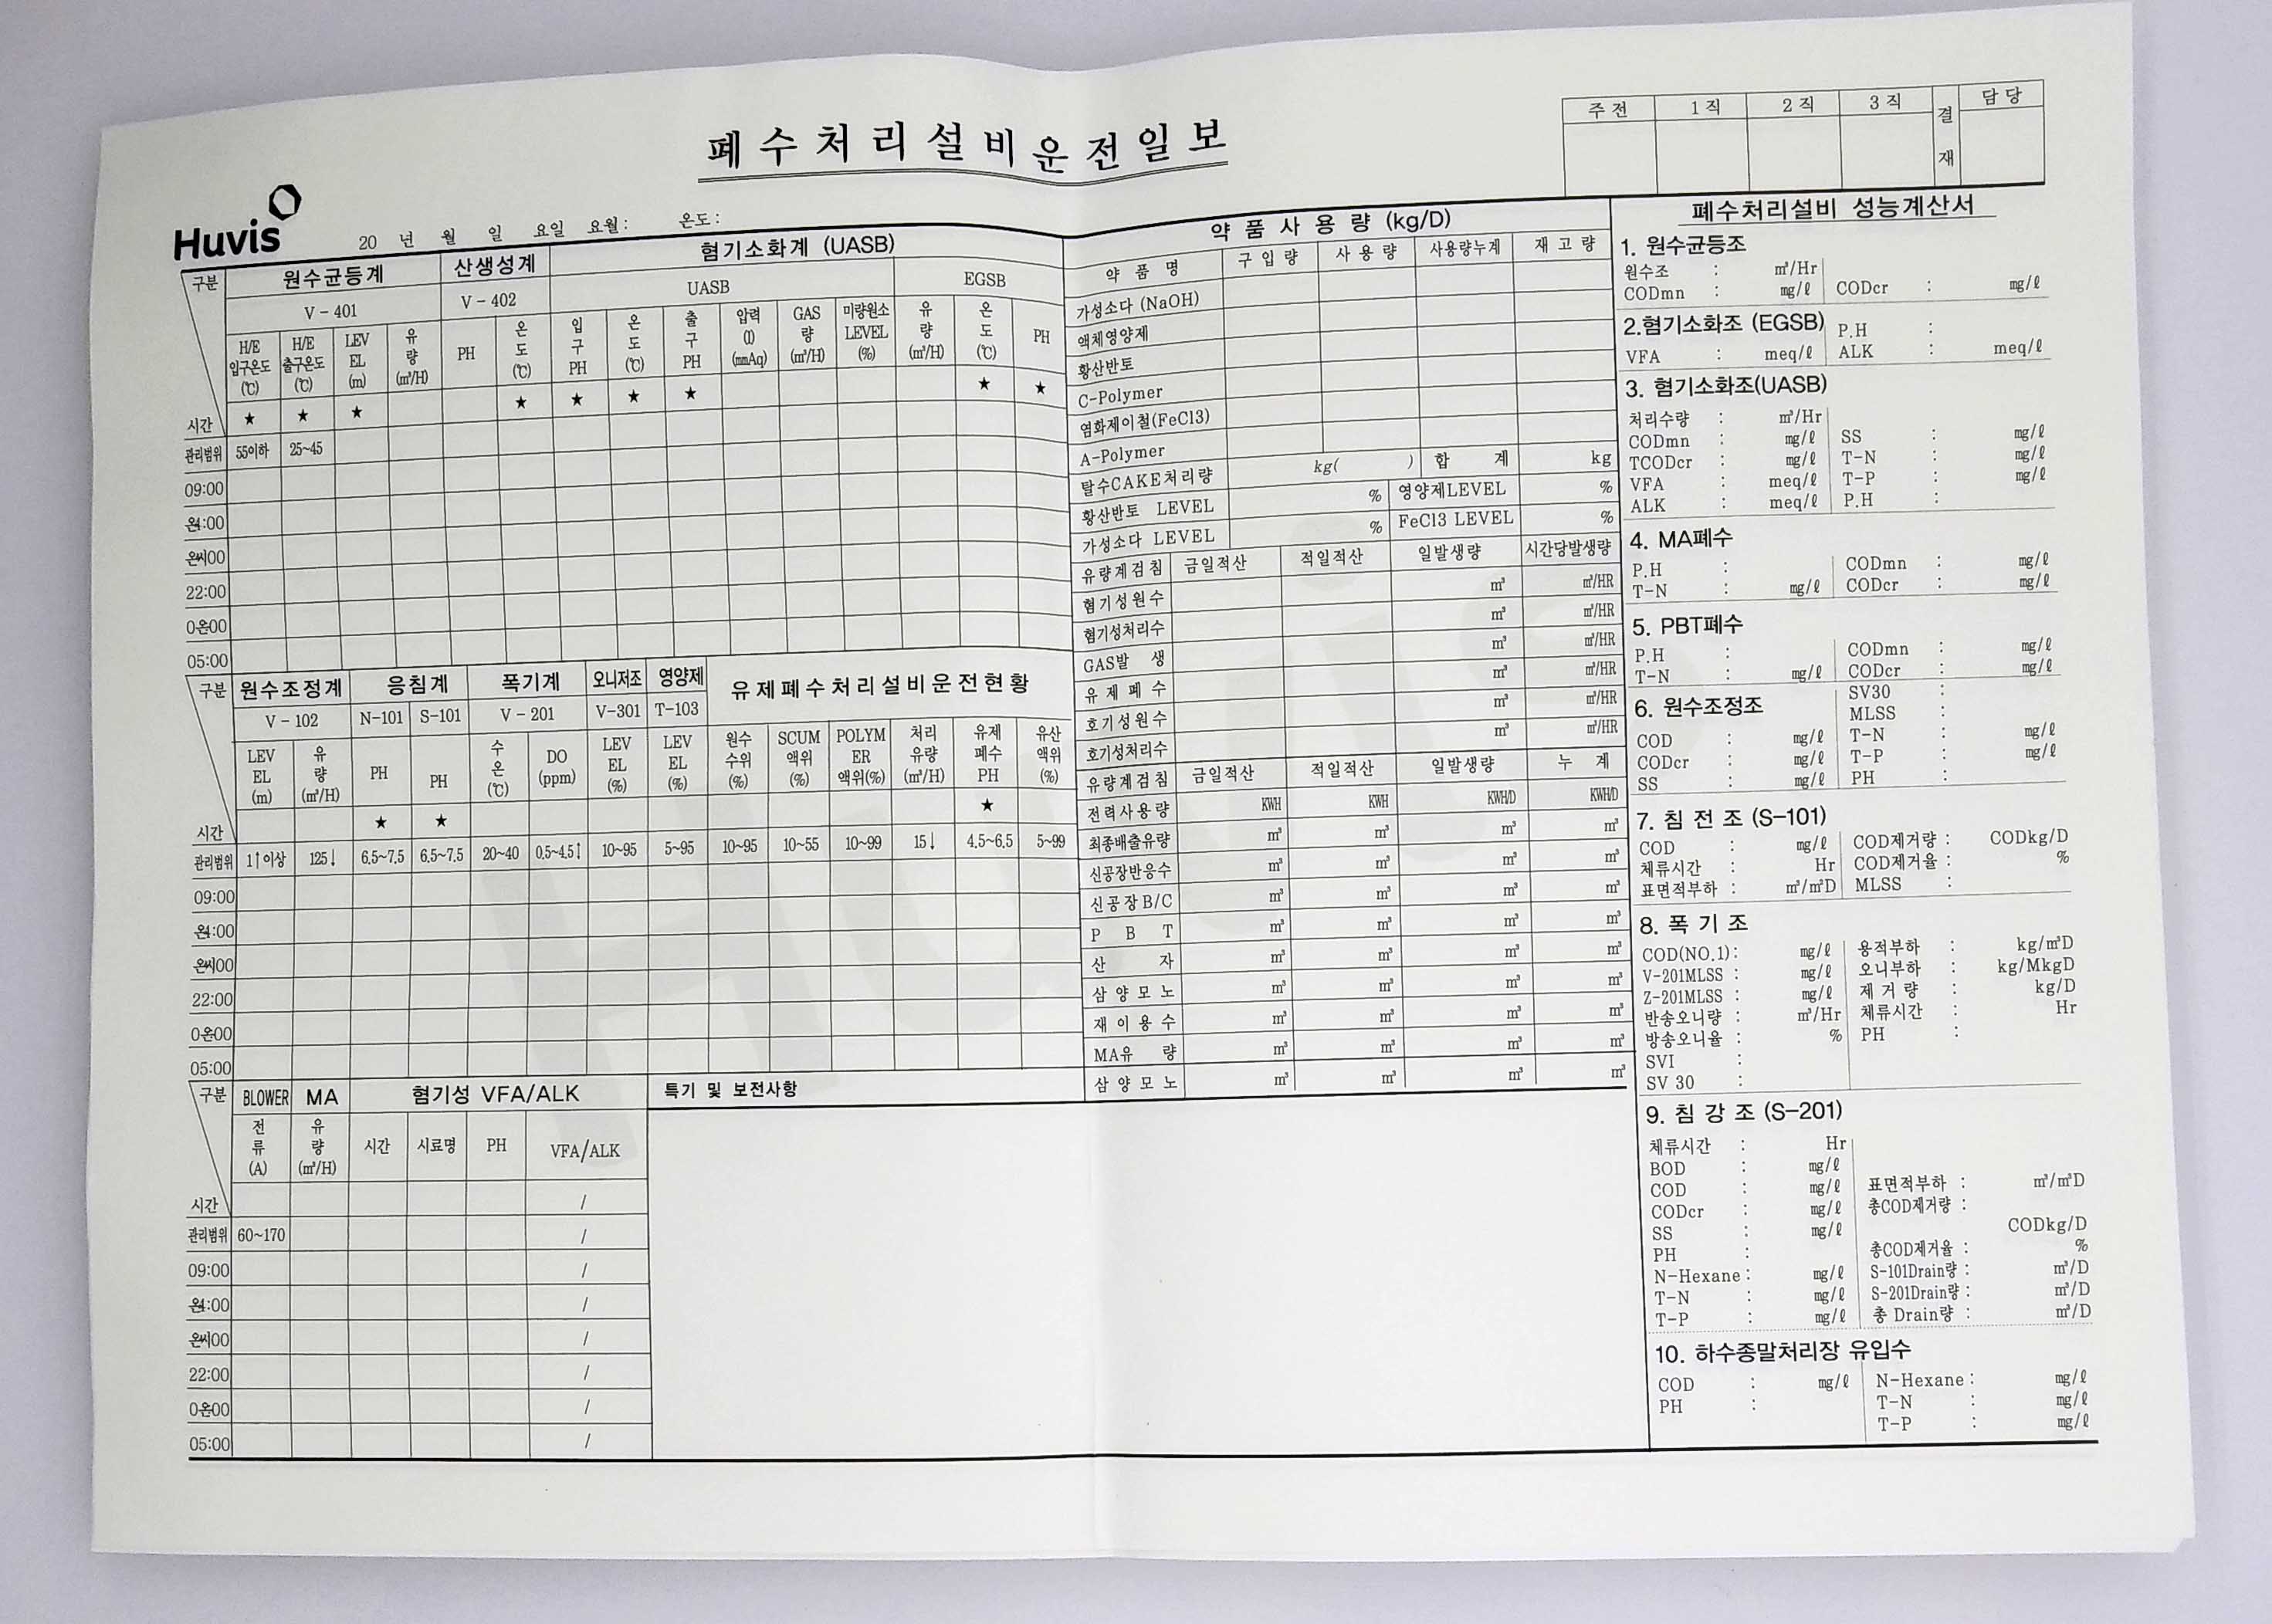 폐수처리설비운전일보
주 전 1 직 2 직 3 직 결 재 담 당
Huvis
20 년 월 일 요일 요월 : 온도 :
구분 원수균등계 산생성계 혐기소화계 (UASB)
V - 401 V - 402 UASB EGSB
H/E 입구온도 (℃) H/E 출구온도 (℃) LEV EL (m) 유 량 (㎥/H) PH 온 도 (℃) 입 구 PH 온 도 (℃) 출 구 PH 압력 (l) (mmAq) GAS 량 (㎥/H) 미량원소 LEVEL (%) 유 량 (㎥/H) 온 도 (℃) PH
시간 ★ ★ ★ ★ ★ ★ ★ ★ ★
관리범위 55이하 25~45
09:00
22:00
05:00
구분 원수조정계 응침계 폭기계 오니저조 영양제 유제폐수처리설비운전현황
V - 102 N-101 S-101 V - 201 V-301 T-103
LEV EL (m) 유 량 (㎥/H) PH PH 수 온 (℃) DO (ppm) LEV EL (%) LEV EL (%) 원수 수위 (%) SCUM 액위 (%) POLYM ER 액위(%) 처리 유량 (㎥/H) 유제 폐수 PH 유산 액위 (%)
시간 ★ ★ ★
관리범위 1↑이상 125↓ 6.5~7.5 6.5~7.5 20~40 0.5~4.5↑ 10~95 5~95 10~95 10~55 10~99 15↓ 4.5~6.5 5~99
09:00
22:00
05:00
구분 BLOWER MA 혐기성 VFA/ALK 특기 및 보전사항
전 류 (A) 유 량 (㎥/H) 시간 시료명 PH VFA/ALK
시간 /
관리범위 60~170 /
09:00 /
/
/
22:00 /
/
05:00 /
약 품 사 용 량 (kg/D)
약 품 명 구 입 량 사 용 량 사용량누계 재 고 량
가성소다 (NaOH)
액체영양제
황산반토
C-Polymer
염화제이철(FeCl3)
A-Polymer
탈수CAKE처리량 kg( ) 합 계 kg
황산반토 LEVEL % 영양제LEVEL %
가성소다 LEVEL % FeCl3 LEVEL %
유량계검침 금일적산 적일적산 일발생량 시간당발생량
혐기성원수 ㎥ ㎥/HR
혐기성처리수 ㎥ ㎥/HR
GAS발 생 ㎥ ㎥/HR
유 제 폐 수 ㎥ ㎥/HR
호기성원수 ㎥ ㎥/HR
호기성처리수 ㎥ ㎥/HR
유량계검침 금일적산 적일적산 일발생량 누 계
전력사용량 KWH KWH KWH/D KWH/D
최종배출유량 ㎥ ㎥ ㎥ ㎥
신공장반응수 ㎥ ㎥ ㎥ ㎥
신공장B/C ㎥ ㎥ ㎥ ㎥
P B T ㎥ ㎥ ㎥ ㎥
산 자 ㎥ ㎥ ㎥ ㎥
삼 양 모 노 ㎥ ㎥ ㎥ ㎥
재 이 용 수 ㎥ ㎥ ㎥ ㎥
MA유 량 ㎥ ㎥ ㎥ ㎥
삼 양 모 노 ㎥ ㎥ ㎥ ㎥
폐수처리설비 성능계산서
1. 원수균등조
원수조 : ㎥/Hr
CODmn : mg/ℓ CODcr : mg/ℓ
2.혐기소화조 (EGSB) P.H :
VFA : meq/ℓ ALK : meq/ℓ
3. 혐기소화조(UASB)
처리수량 : ㎥/Hr
CODmn : mg/ℓ SS : mg/ℓ
TCODcr : mg/ℓ T-N : mg/ℓ
VFA : meq/ℓ T-P : mg/ℓ
ALK : meq/ℓ P.H :
4. MA폐수
P.H : CODmn : mg/ℓ
T-N : mg/ℓ CODcr : mg/ℓ
5. PBT폐수
P.H : CODmn : mg/ℓ
T-N : mg/ℓ CODcr : mg/ℓ
6. 원수조정조 SV30 :
MLSS :
COD : mg/ℓ T-N : mg/ℓ
CODcr : mg/ℓ T-P : mg/ℓ
SS : mg/ℓ PH :
7. 침 전 조 (S-101)
COD : mg/ℓ COD제거량 : CODkg/D
체류시간 : Hr COD제거율 : %
표면적부하 : ㎥/㎥D MLSS :
8. 폭 기 조
COD(NO.1) : mg/ℓ 용적부하 : kg/㎥D
V-201MLSS : mg/ℓ 오니부하 : kg/MkgD
Z-201MLSS : mg/ℓ 제 거 량 : kg/D
반송오니량 : ㎥/Hr 체류시간 : Hr
방송오니율 : % PH :
SVI :
SV 30 :
9. 침 강 조 (S-201)
체류시간 : Hr
BOD : mg/ℓ
COD : mg/ℓ 표면적부하 : ㎥/㎥D
CODcr : mg/ℓ 총COD제거량 :
SS : mg/ℓ CODkg/D
PH : 총COD제거율 : %
N-Hexane : mg/ℓ S-101Drain량 : ㎥/D
T-N : mg/ℓ S-201Drain량 : ㎥/D
T-P : mg/ℓ 총 Drain량 : ㎥/D
10. 하수종말처리장 유입수
COD : mg/ℓ N-Hexane : mg/ℓ
PH : T-N : mg/ℓ
T-P : mg/ℓ